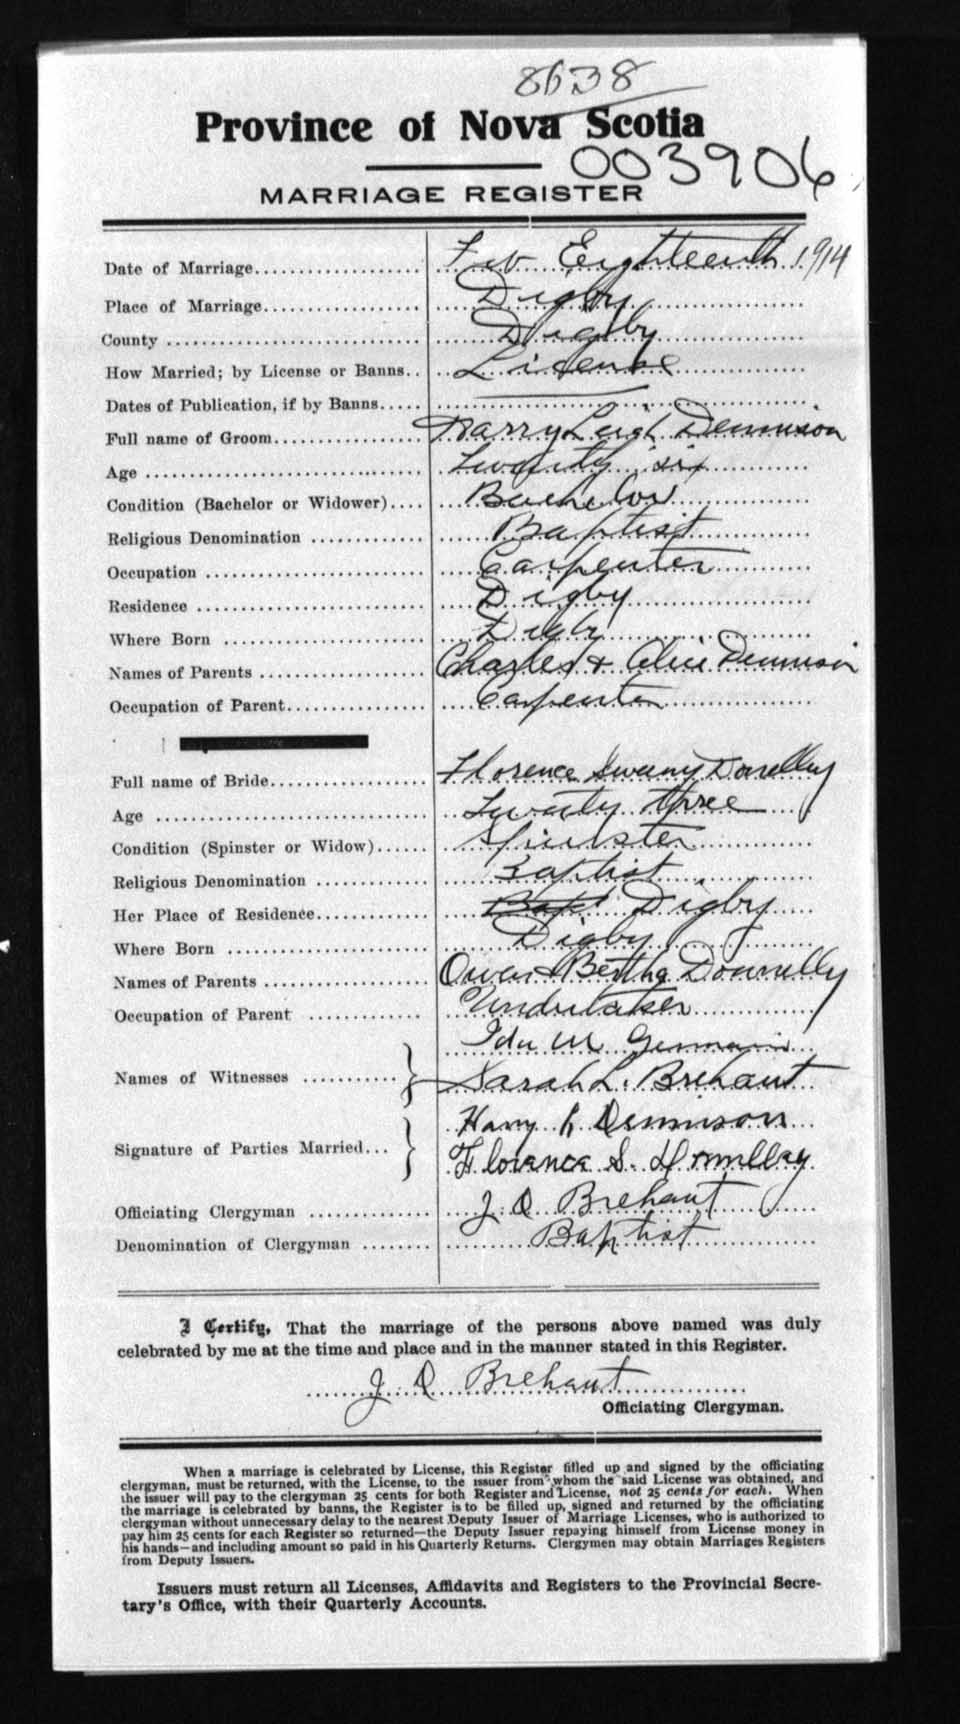 8638
Province of Nova Scotia
003906
MARRIAGE REGISTER
Date of Marriage.................... Feb Eighteenth 1914
Place of Marriage................... Digby
County .............................. Digby
How Married; by License or Banns.. License
Dates of Publication, if by Banns.....
Full name of Groom.................. Harry Leigh Dennison
Age ................................. Twenty six
Condition (Bachelor or Widower).... Bachelor
Religious Denomination ............. Baptist
Occupation .......................... Carpenter
Residence ........................... Digby
Where Born ........................ Digby
Names of Parents ................... Charles & Alice Dennison
Occupation of Parent................ Carpenter
Full name of Bride................... Florence Sweeny Donelley
Age ................................. Twenty three
Condition (Spinster or Widow)...... Spinster
Religious Denomination ............. Baptist
Her Place of Residence............. Bapt Digby
Where Born ........................ Digby
Names of Parents ................... Owen & Bertha Donnelly
Occupation of Parent .............. Undertaker
Ida M Germain
Names of Witnesses ........... Sarah L. Brehaut
Harry L Dennison
Signature of Parties Married... Florence S. Donnelley
Officiating Clergyman .............. J D Brehaut
Denomination of Clergyman ........ Baptist
I Certify, That the marriage of the persons above named was duly
celebrated by me at the time and place and in the manner stated in this Register.
J D Brehaut
Officiating Clergyman.
When a marriage is celebrated by License, this Register filled up and signed by the officiating
clergyman, must be returned, with the License, to the issuer from whom the said License was obtained, and
the issuer will pay to the clergyman 25 cents for both Register and License, not 25 cents for each. When
the marriage is celebrated by banns, the Register is to be filled up, signed and returned by the officiating
clergyman without unnecessary delay to the nearest Deputy Issuer of Marriage Licenses, who is authorized to
pay him 25 cents for each Register so returned—the Deputy Issuer repaying himself from License money in
his hands—and including amount so paid in his Quarterly Returns. Clergymen may obtain Marriages Registers
from Deputy Issuers.
Issuers must return all Licenses, Affidavits and Registers to the Provincial Secre-
tary's Office, with their Quarterly Accounts.